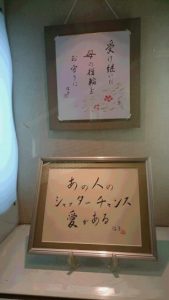 受け継いだ
母の指輪を
お守りに
あの人の
シャッターチャンス
愛がある